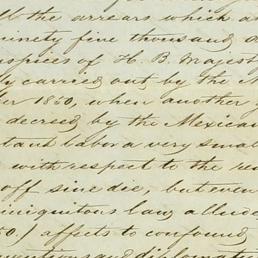 ll the arrears which a
ninety five thousand a
uspices of H. B. Majest
y carried out by the
er 1850, when another
decreed by the Mexican
tant labor a very smal
with respect to the re
off sine die, but even
iniquitous law allude
50.) affects to confound
ventions and diplomat